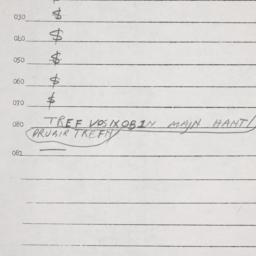 030 $
040 $
050 $
060 $
070 $
080 TREF VOSIXOBIN MAJN HANT/
DRUAIR TREFN/
081